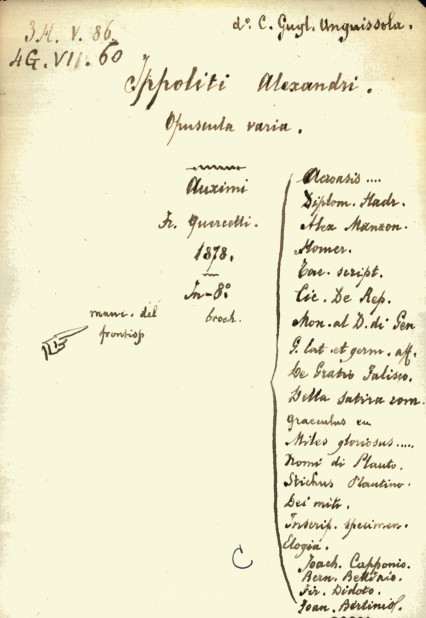 3M. V. 86.
4G. VII. 60
d°. C. Gugl. Anguissola.
Ippoliti Alexandri.
Opuscula varia.
Auximi
Fr. Quercetti.
1878.
In-8°.
broch.
manc. del
frontisp
Acroasis ....
Diplom. Hadr.
Alex Manzon.
Homer.
Tac. script.
Cic. De Rep.
Mon. al D. di Gen
G. lat et germ. aff.
De Gratio Falisco.
Della Satira rom.
Graeculus eu
Miles gloriosus .....
Nomi di Plauto.
Stichus Plautino.
Dei miti.
Inscrip. specimen.
Elogia.
Joach. Capponio.
Bern. Bellinio.
Fir. Didoto.
Joan. Bertinio.
C